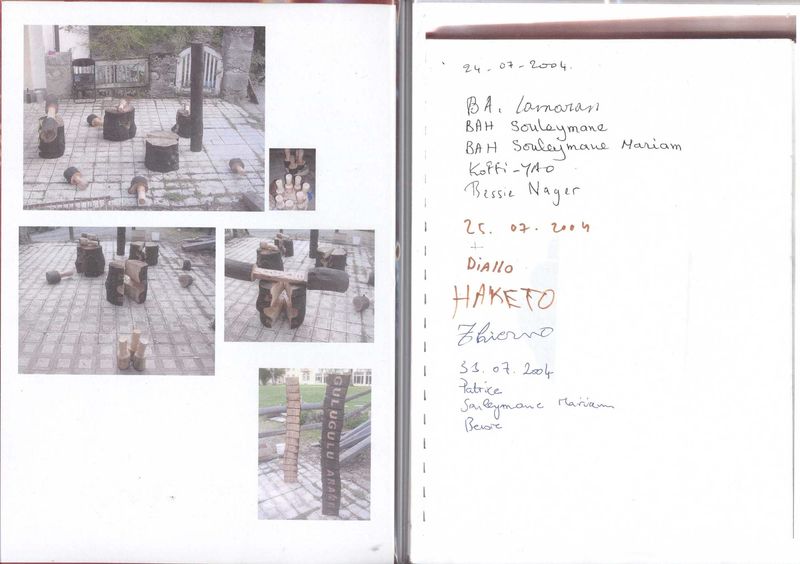 GULUGULU ARAMI
24-07-2004.
BA. Lamaran
BAH Souleymane
BAH Souleymane Mariam
Koffi-YAO
Bessie Nager
25. 07. 2004
+
Diallo
HAKETO
31.07.2004
Patrice
Souleymane Mariam
Bessie